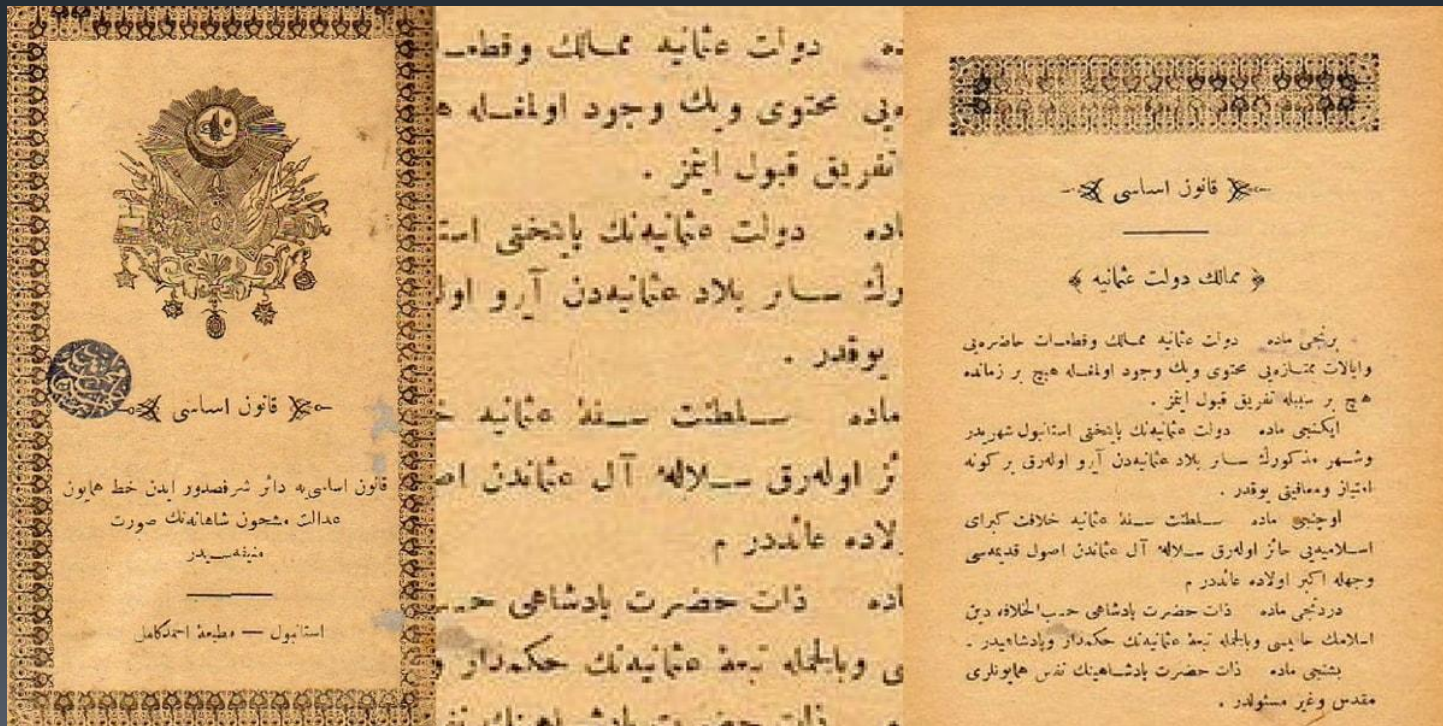 قانون اساسی
قانون اساسی‌یه دائر شرفصدور ایدن خط همایون
عدالت مشحون شاهانه‌نك صورت
منیفه‌سیدر
استانبول — مطبعۀ احمد كامل
دولت عثمانیه ممالك وقطعـ
محتوی ویك وجود اولمغله
تفریق قبول ایتمز .
دولت عثمانیه‌نك پایتختی استا
سـائر بلاد عثمانیه‌دن آیرو اولـ
یوقدر .
ماده سـلطنت سـنیۀ عثمانیه
ئز اوله‌رق سـلالۀ آل عثماندن اصـ
ولاده عائددر م
ذات حضرت پادشاهی حسـ
وبالجمله تبعۀ عثمانیه‌نك حكمدار و
ذات حضرت پادشـاهینك نفـ
قانون اساسی
﴿ ممالك دولت عثمانیه ﴾
برنجی ماده دولت عثمانیه ممـالك وقطعـات حاضره‌یی
وایالات ممتـازه‌یی محتوی ویك وجود اولمغـله هیچ بر زمانده
هیچ بر سببله تفریق قبول ایتمز .
ایكنجی ماده دولت عثمانیه‌نك پایتختی استانبول شهریدر
وشـهر مذكورك سـائر بلاد عثمانیه‌دن آیرو اوله‌رق بر كونه
امتیاز ومعافیتی یوقدر .
اوچنجی ماده سـلطنت سـنیۀ عثمانیه خلافت كبرای
اسـلامیه‌یی حائز اوله‌رق سـلالۀ آل عثماندن اصول قدیمه‌سی
وجهله اكبر اولاده عائددر م
دردنجی ماده ذات حضرت پادشاهی حسـب‌الخلافه دین
اسلامك حامیسی وبالجمله تبعۀ عثمانیه‌نك حكمدار وپادشاهیدر .
بشنجی ماده ذات حضرت پادشـاهینك نفس همایونلری
مقدس وغیر مسئولدر .